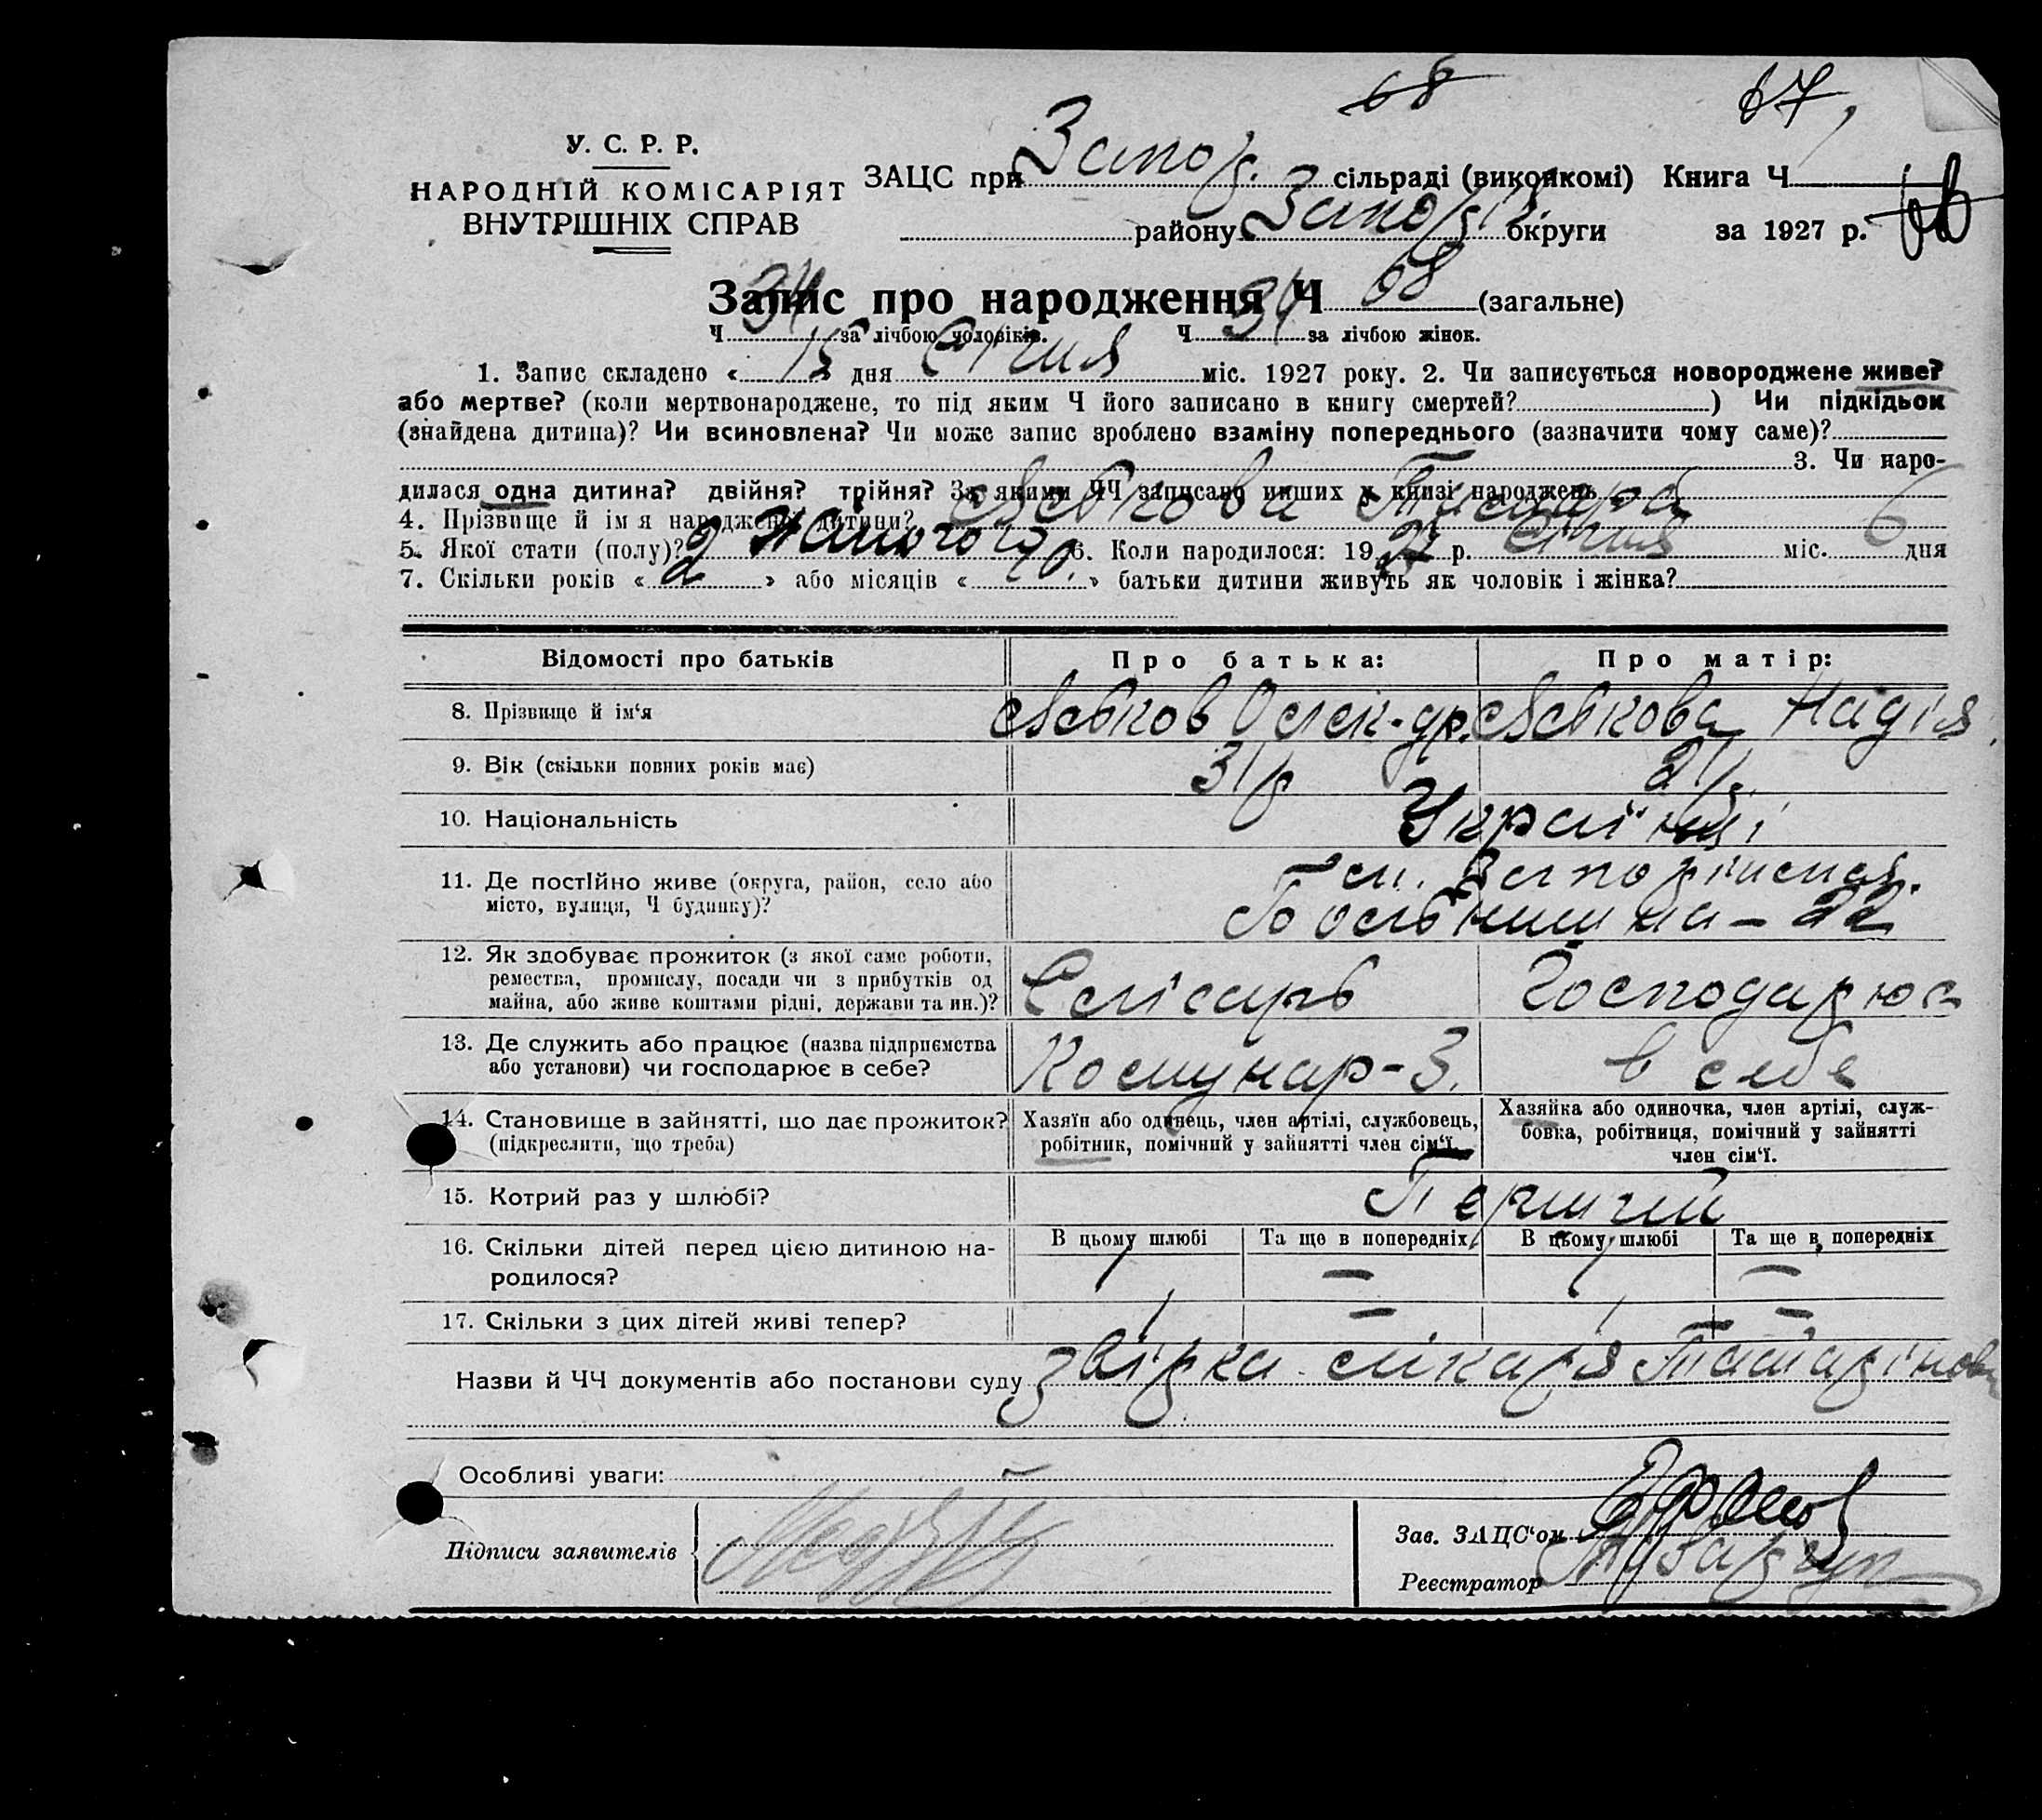 68 67
У. С. Р. Р.
НАРОДНІЙ КОМІСАРІЯТ
ВНУТРІШНІХ СПРАВ
ЗАЦС при Запор. сільраді (виконкомі) Книга Ч
району Запоріз. округи за 1927 р.
Запис про народження Ч 68 (загальне)
Ч 34 за лічбою чоловіків. Ч 34 за лічбою жінок.
1. Запис складено « 15 » дня Січня міс. 1927 року. 2. Чи записується новороджене живе?
або мертве? (коли мертвонароджене, то під яким Ч його записано в книгу смертей? ) Чи підкідьок
(знайдена дитина)? Чи всиновлена? Чи може запис зроблено взаміну попереднього (зазначити чому саме)?
3. Чи наро-
дилася одна дитина? двійня? трійня? За якими ЧЧ записано инших у книзі народжень
4. Прізвище й ім'я народженої дитини? Лєвкова Тамара
5. Якої стати (полу)? Жіночого 6. Коли народилося: 1927 р. Січня міс. 6 дня
7. Скільки років « 2 » або місяців « » батьки дитини живуть як чоловік і жінка?
Відомості про батьків Про батька: Про матір:
8. Прізвище й ім'я Лєвков Олек-др. Лєвкова Надія
9. Вік (скільки повних років має) 31 р 21 р.
10. Національність Українці
11. Де постійно живе (округа, район, село або
місто, вулиця, Ч будинку)?
22
12. Як здобуває прожиток (з якої саме роботи,
ремества, промислу, посади чи з прибутків од
майна, або живе коштами рідні, держави та ин.)? Слісарь Господарює
13. Де служить або працює (назва підприємства
або установи) чи господарює в себе? Комунар-З. в себе
14. Становище в зайнятті, що дає прожиток?
(підкреслити, що треба)
Хазяїн або одинець, член артілі, службовець,
робітник, помічний у зайнятті член сім'ї.
Хазяйка або одиночка, член артілі, служ-
бовка, робітниця, помічний у зайнятті
член сім'ї.
15. Котрий раз у шлюбі? Перший
16. Скільки дітей перед цією дитиною на-
родилося?
В цьому шлюбі Та ще в попередніх В цьому шлюбі Та ще в попередніх
1 — 1 —
17. Скільки з цих дітей живі тепер? 1 — 1 —
Назви й ЧЧ документів або постанови суду звірка лікаря
Особливі уваги: —
Підписи заявителів
Зав. ЗАЦС'ом
Реєстратор